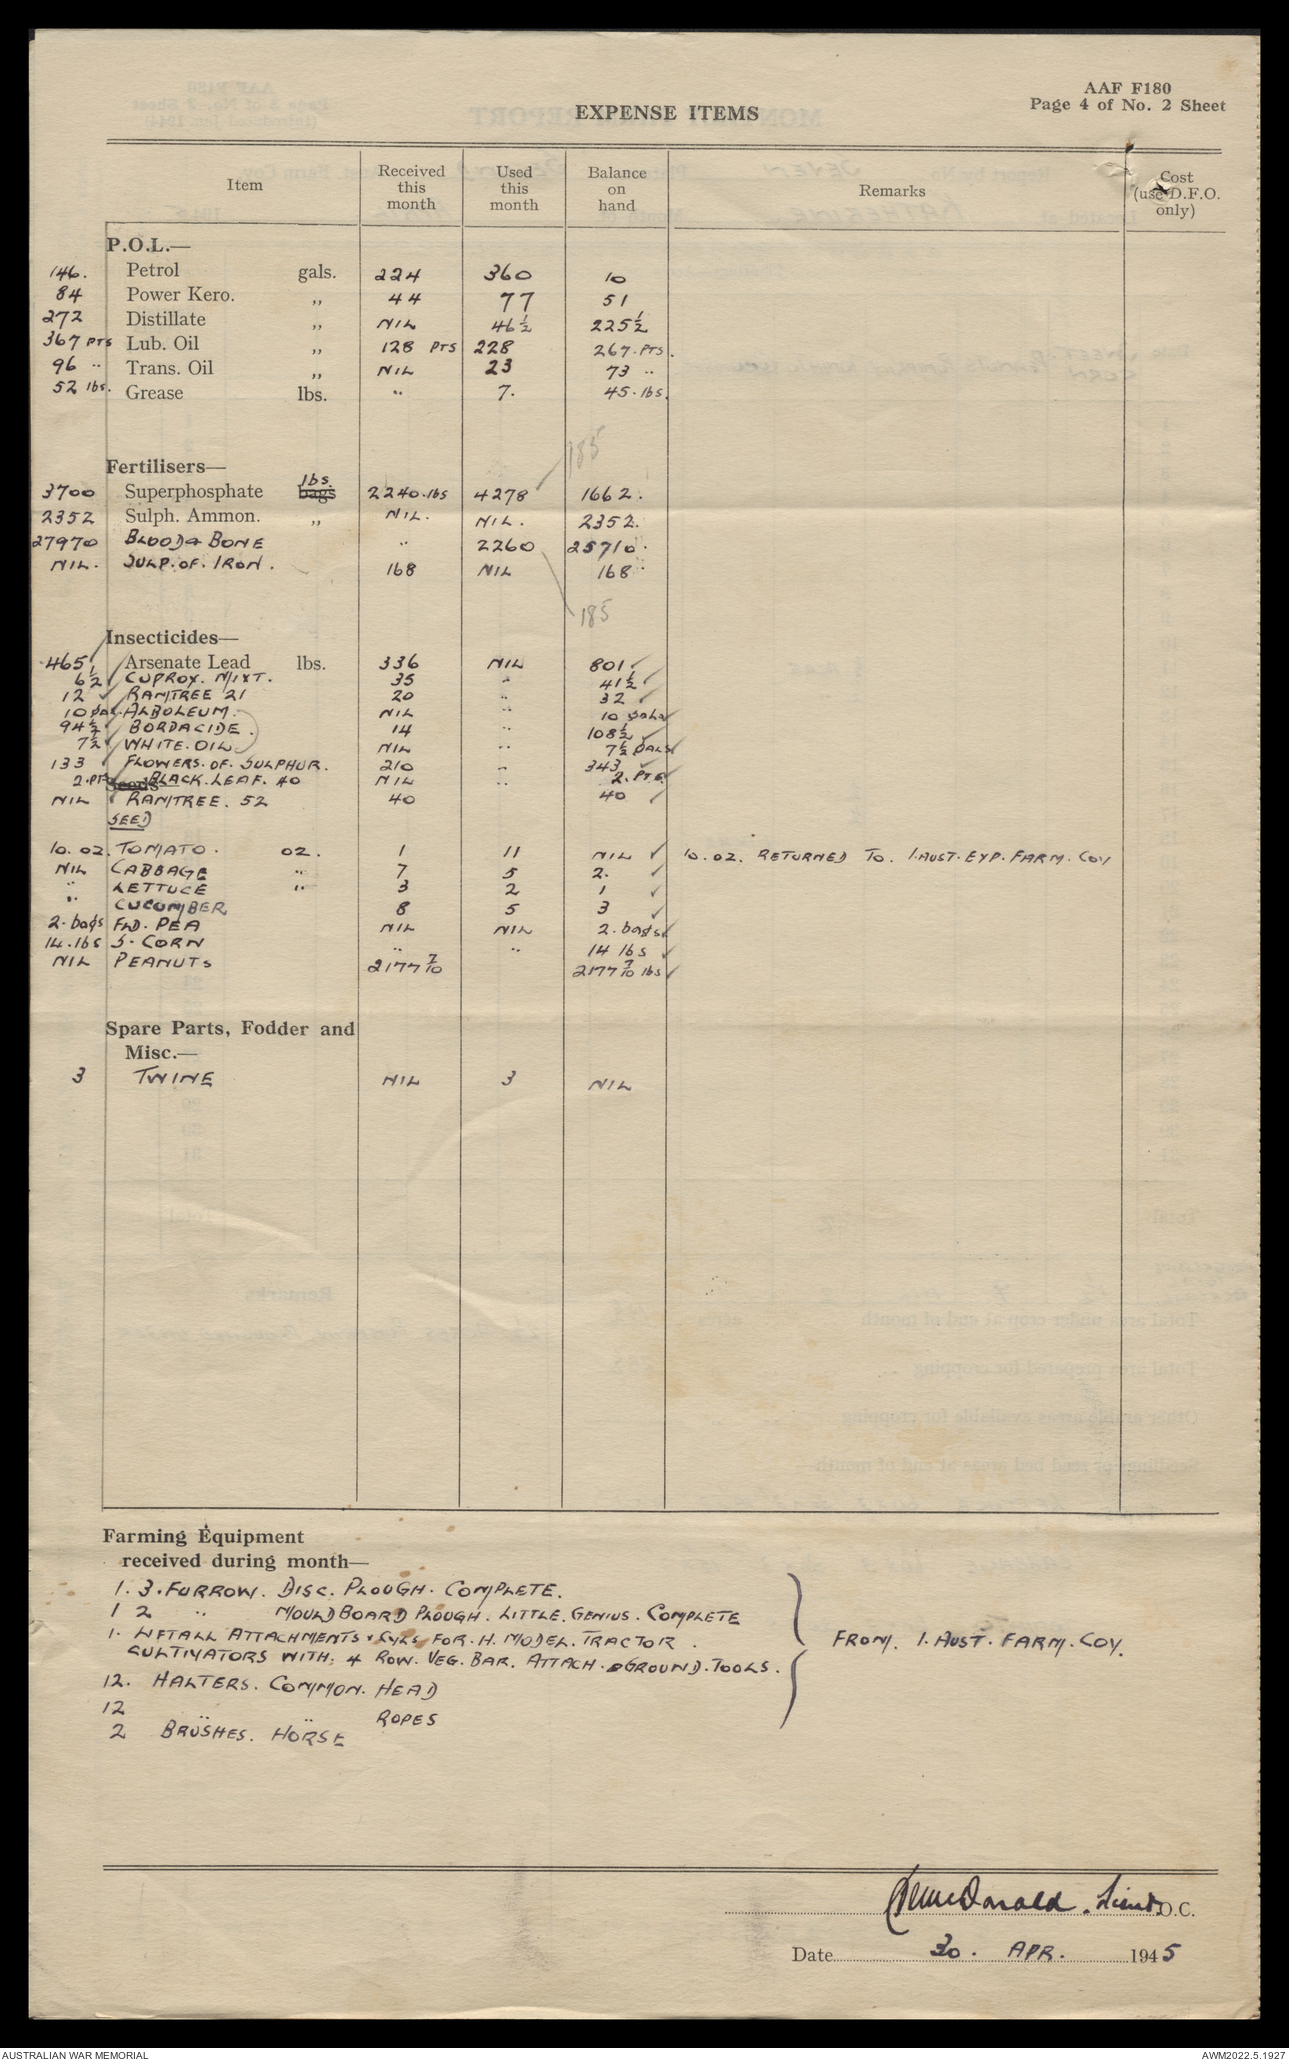 AAF F180
Page 4 of No. 2 Sheet
EXPENSE ITEMS
Item Received this month Used this month Balance on hand Remarks Cost (use D.F.O. only)
P.O.L.—
146. Petrol gals. 224 360 10
84 Power Kero. ,, 44 77 51
272 Distillate ,, NIL 46½ 225½
367 PTS Lub. Oil ,, 128 PTS 228 267. PTS.
96 " Trans. Oil ,, NIL 23 73 "
52 lbs. Grease lbs. " 7. 45. lbs.
185
Fertilisers—
3700 Superphosphate bags lbs. 2240. lbs 4278 1662.
2352 Sulph. Ammon. ,, NIL. NIL. 2352.
27970 BLOOD & BONE " 2260 25710.
NIL. SULP. OF. IRON. 168 NIL 168 "
185
Insecticides—
465 Arsenate Lead lbs. 336 NIL 801 ✓
6½ ✓ CUPROX. MIXT. 35 " 41½ ✓
12 ✓ RAMTREE 21 20 " 32 ✓
10 gal. ALBOLEUM. NIL " 10 gals ✓
94½ ✓ BORDACIDE. 14 " 108½ ✓
7½ ✓ WHITE. OIL NIL " 7½ GALS ✓
133 ✓ FLOWERS. OF. SULPHUR. 210 " 343 ✓
2. PTS Seeds BLACK. LEAF. 40 NIL 2. PTS ✓
NIL ✓ RAMTREE. 52 40 40 ✓
SEED
10. OZ. TOMATO. OZ. 1 11 NIL ✓ 10. OZ. RETURNED TO. 1. AUST. EXP. FARM. COY
NIL CABBAGE " 7 5 2. ✓
" LETTUCE " 3 2 1 ✓
" CUCUMBER 8 5 3 ✓
2. bags FLD. PEA NIL NIL 2. bags ✓
14. lbs S. CORN " " 14 lbs ✓
NIL PEANUTS 2177 7/10 2177 7/10 lbs ✓
Spare Parts, Fodder and
Misc.—
3 TWINE NIL 3 NIL
Farming Equipment
received during month—
1. 3. FURROW. DISC. PLOUGH. COMPLETE.
1 2 " MOULDBOARD PLOUGH. LITTLE. GENIUS. COMPLETE
1. LIFTALL ATTACHMENTS & CYLS FOR. H. MODEL. TRACTOR.
CULTIVATORS WITH. 4 ROW. VEG. BAR. ATTACH. & GROUND. TOOLS.
FROM. 1. AUST. FARM. COY.
12. HALTERS. COMMON. HEAD
12 " " ROPES
2 BRUSHES. HORSE
McDonald. Lieut. O.C.
Date 30. APR. 1945
AUSTRALIAN WAR MEMORIAL
AWM2022.5.1927